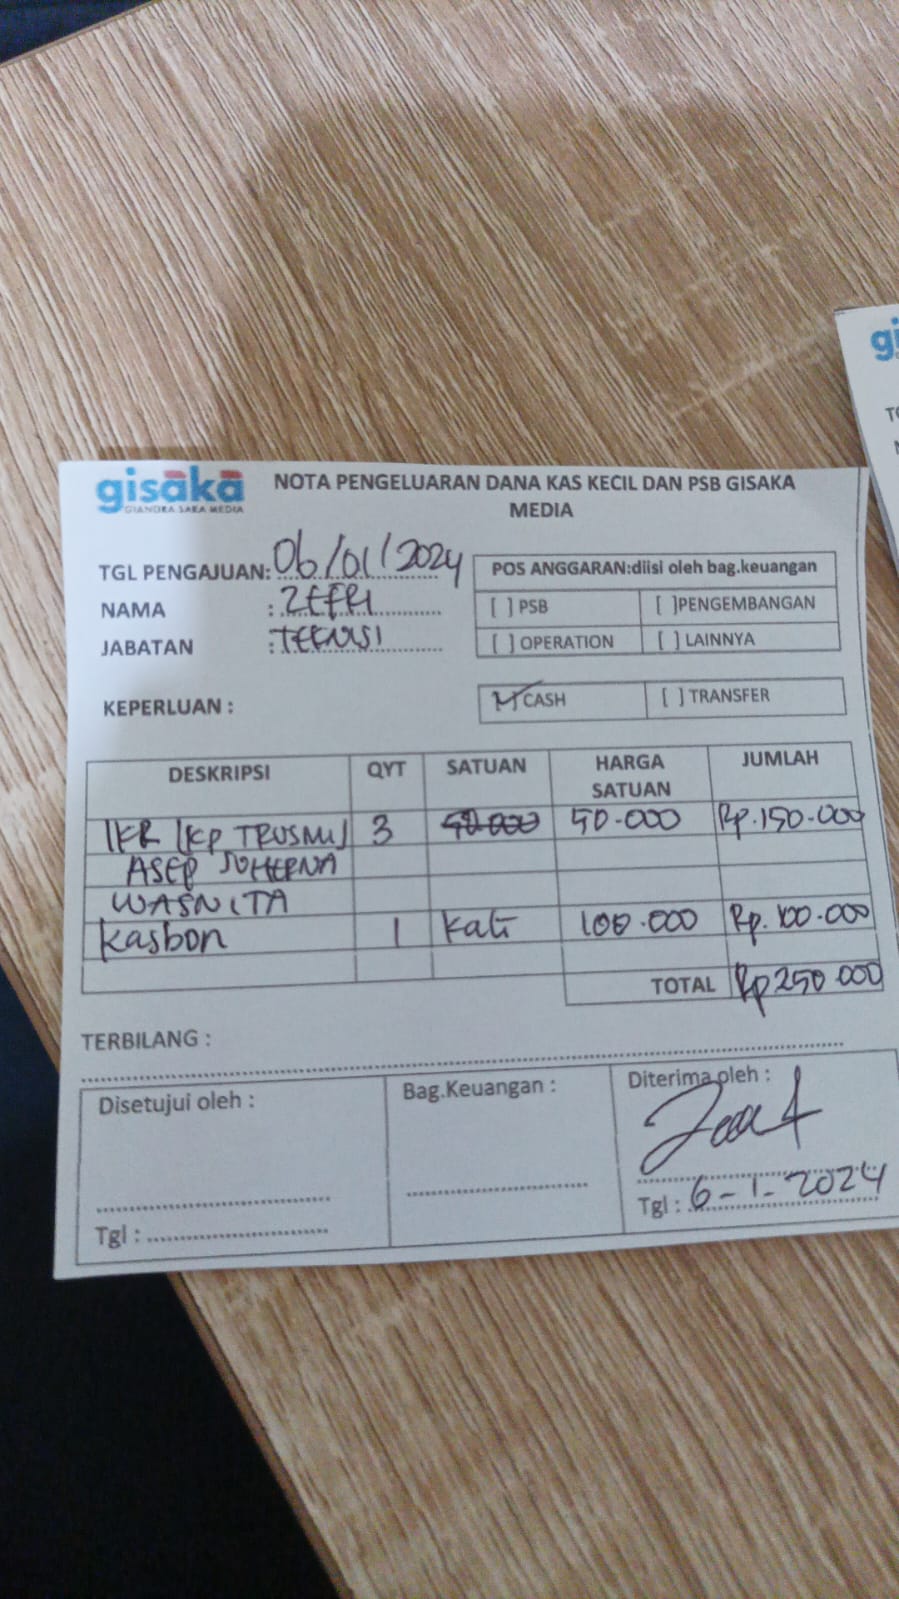 gisaka
GIANDRA SAKA MEDIA
NOTA PENGELUARAN DANA KAS KECIL DAN PSB GISAKA
MEDIA
TGL PENGAJUAN: 06/01/2024
NAMA : ZEFRI
JABATAN : TEKNISI
POS ANGGARAN:diisi oleh bag.keuangan
[ ] PSB [ ]PENGEMBANGAN
[ ] OPERATION [ ] LAINNYA
KEPERLUAN :
[✓] CASH [ ] TRANSFER
DESKRIPSI QYT SATUAN HARGA SATUAN JUMLAH
IKR (KP TRUSMI) 3 50.000 50.000 Rp.150.000
ASEP SUHERNA
WASNITA
Kasbon 1 Kali 100.000 Rp.100.000
TOTAL Rp250.000
TERBILANG :
Disetujui oleh : Bag.Keuangan : Diterima oleh :
Tgl : Tgl : 6-1-2024
gi